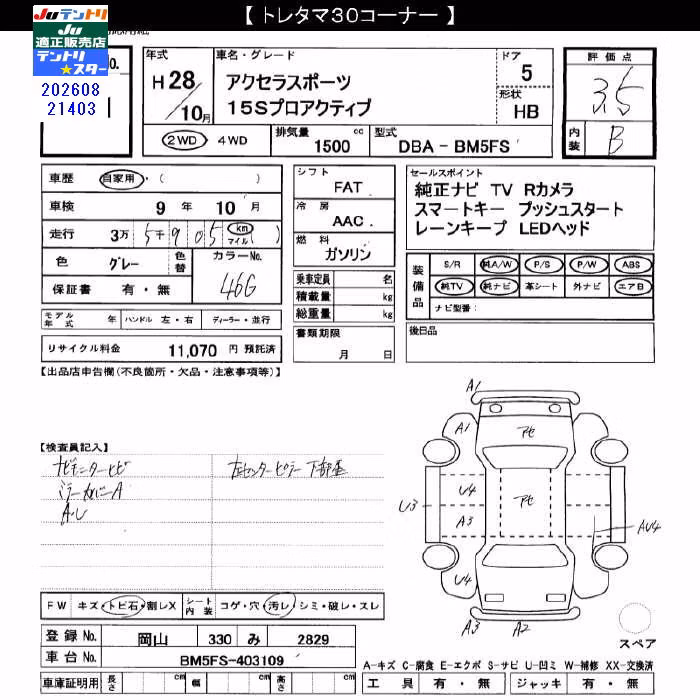 【 トレタマ30コーナー 】
Juテントリ
Ju
適正販売店
テントリ
★スター
No.
202608
21403
年式
H 28/10月
車名・グレード
アクセラスポーツ
15Sプロアクティブ
ドア
5
形状
HB
評価点
3.5
内装
B
2WD ・ 4WD
排気量 1500 cc
型式 DBA - BM5FS
車歴 自家用・( )
車検 9 年 10 月
走行 3万 5千905 km マイル ( )
色 グレー 色替 カラーNo. 46G
保証書 有・無
モデル年式 年 ハンドル 左・右 ディーラー・並行
リサイクル料金 11,070 円 預託済
シフト
FAT
冷房
AAC
燃料
ガソリン
乗車定員 名
積載量 kg
総重量 kg
書類期限
月 日
セールスポイント
純正ナビ TV Rカメラ
スマートキー プッシュスタート
レーンキープ LEDヘッド
装備品
S/R 純A/W P/S P/W ABS
純TV 純ナビ 革シート 外ナビ エアB
ナビ型番:
後日品
【出品店申告欄(不良箇所・欠品・注意事項等)】
【検査員記入】
A・U
A1
A1
アセ
U4
アセ
U3
A3
AU4
U4
A3
A2
スペア
FW キズ・トビ石・割レX シート内装 コゲ・穴・汚レ・シミ・破レ・スレ
登録No. 岡山 330 み 2829
車台No. BM5FS-403109
車庫証明用 長さ cm 幅 cm 高さ cm
A-キズ C-腐食 E-エクボ S-サビ U-凹ミ W-補修 XX-交換済
工具 有・無 ジャッキ 有・無